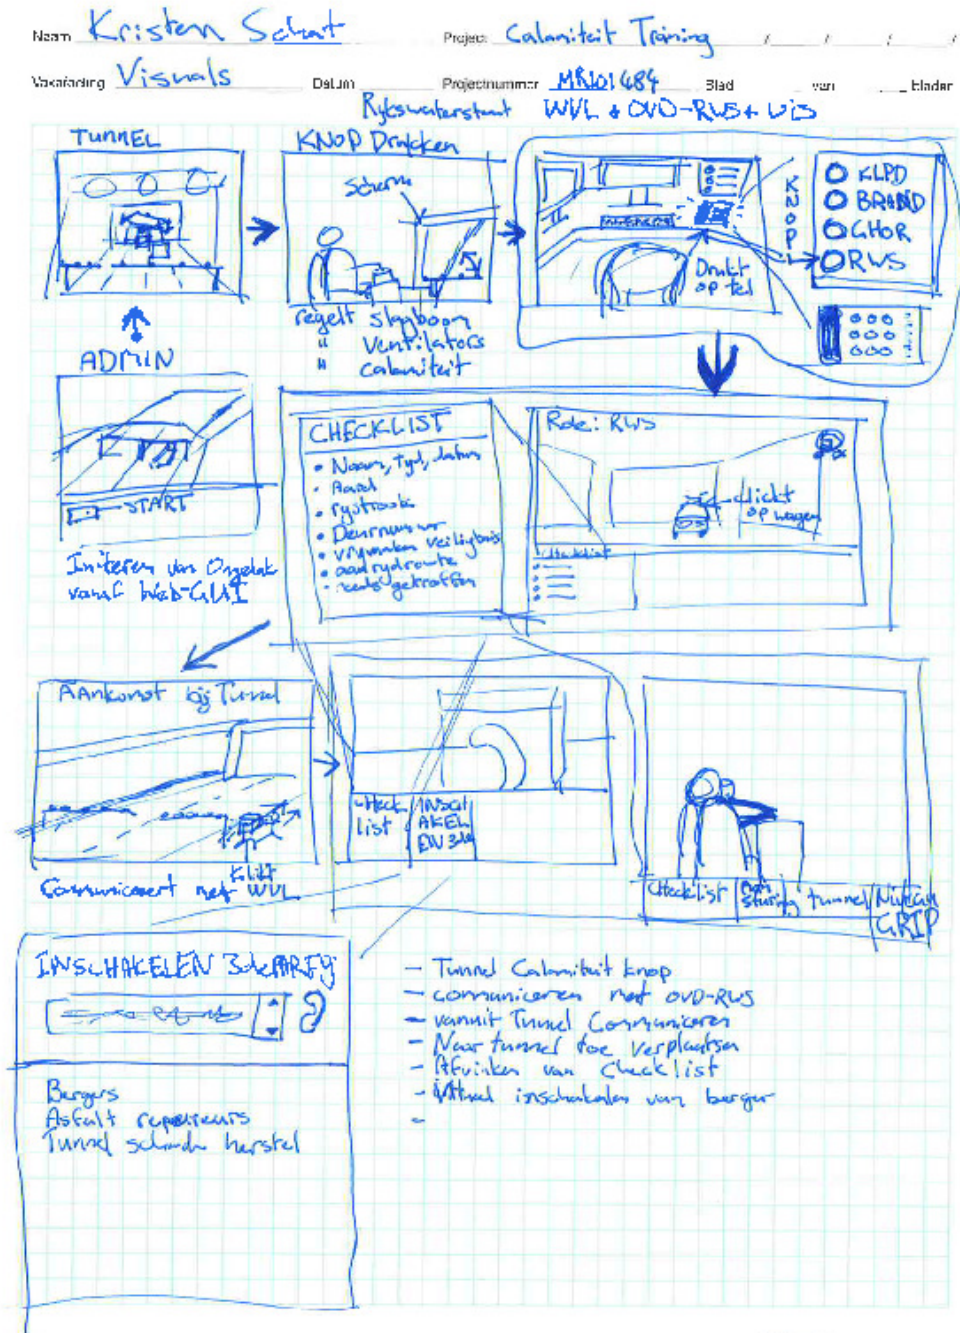 Naam Kristen Schat Project Calamiteit Training / / / /
Vakafdeling Visuals Datum Projectnummer Blad van bladen
Rijkswaterstaat WVL + OVD-RWS + ViS
TUNNEL
KNOP Drukken
Scherm
regelt slagboom
" Ventilators
" calamiteit
Drukt
op tel
KNOP
KLPD
BRAND
GHOR
RWS
ADMIN
START
Initeren van Ongeluk
vanaf Web-GUI
CHECKLIST
• Naam, tijd, datum
• Aard
• rijstrook
• Deurnummer
• aanrijdroute
• reeds getroffen
Role: RWS
clickt
op wagen
checklist
Aankomst bij Tunnel
klikt
Communiceert met WVL
check
list
INSCH
AKEL
EN 3de
checklist
Aan
sturing
tunnel
Niveau
GRIP
INSCHAKELEN 3de PARTY
Bergers
Asfalt reparteurs
Tunnel schade herstel
- Tunnel Calamiteit knop
- communiceren met OVD-RWS
- vanuit Tunnel Communiceren
- Naar tunnel toe verplaatsen
- Afvinken van checklist
- inschakelen van berger
-